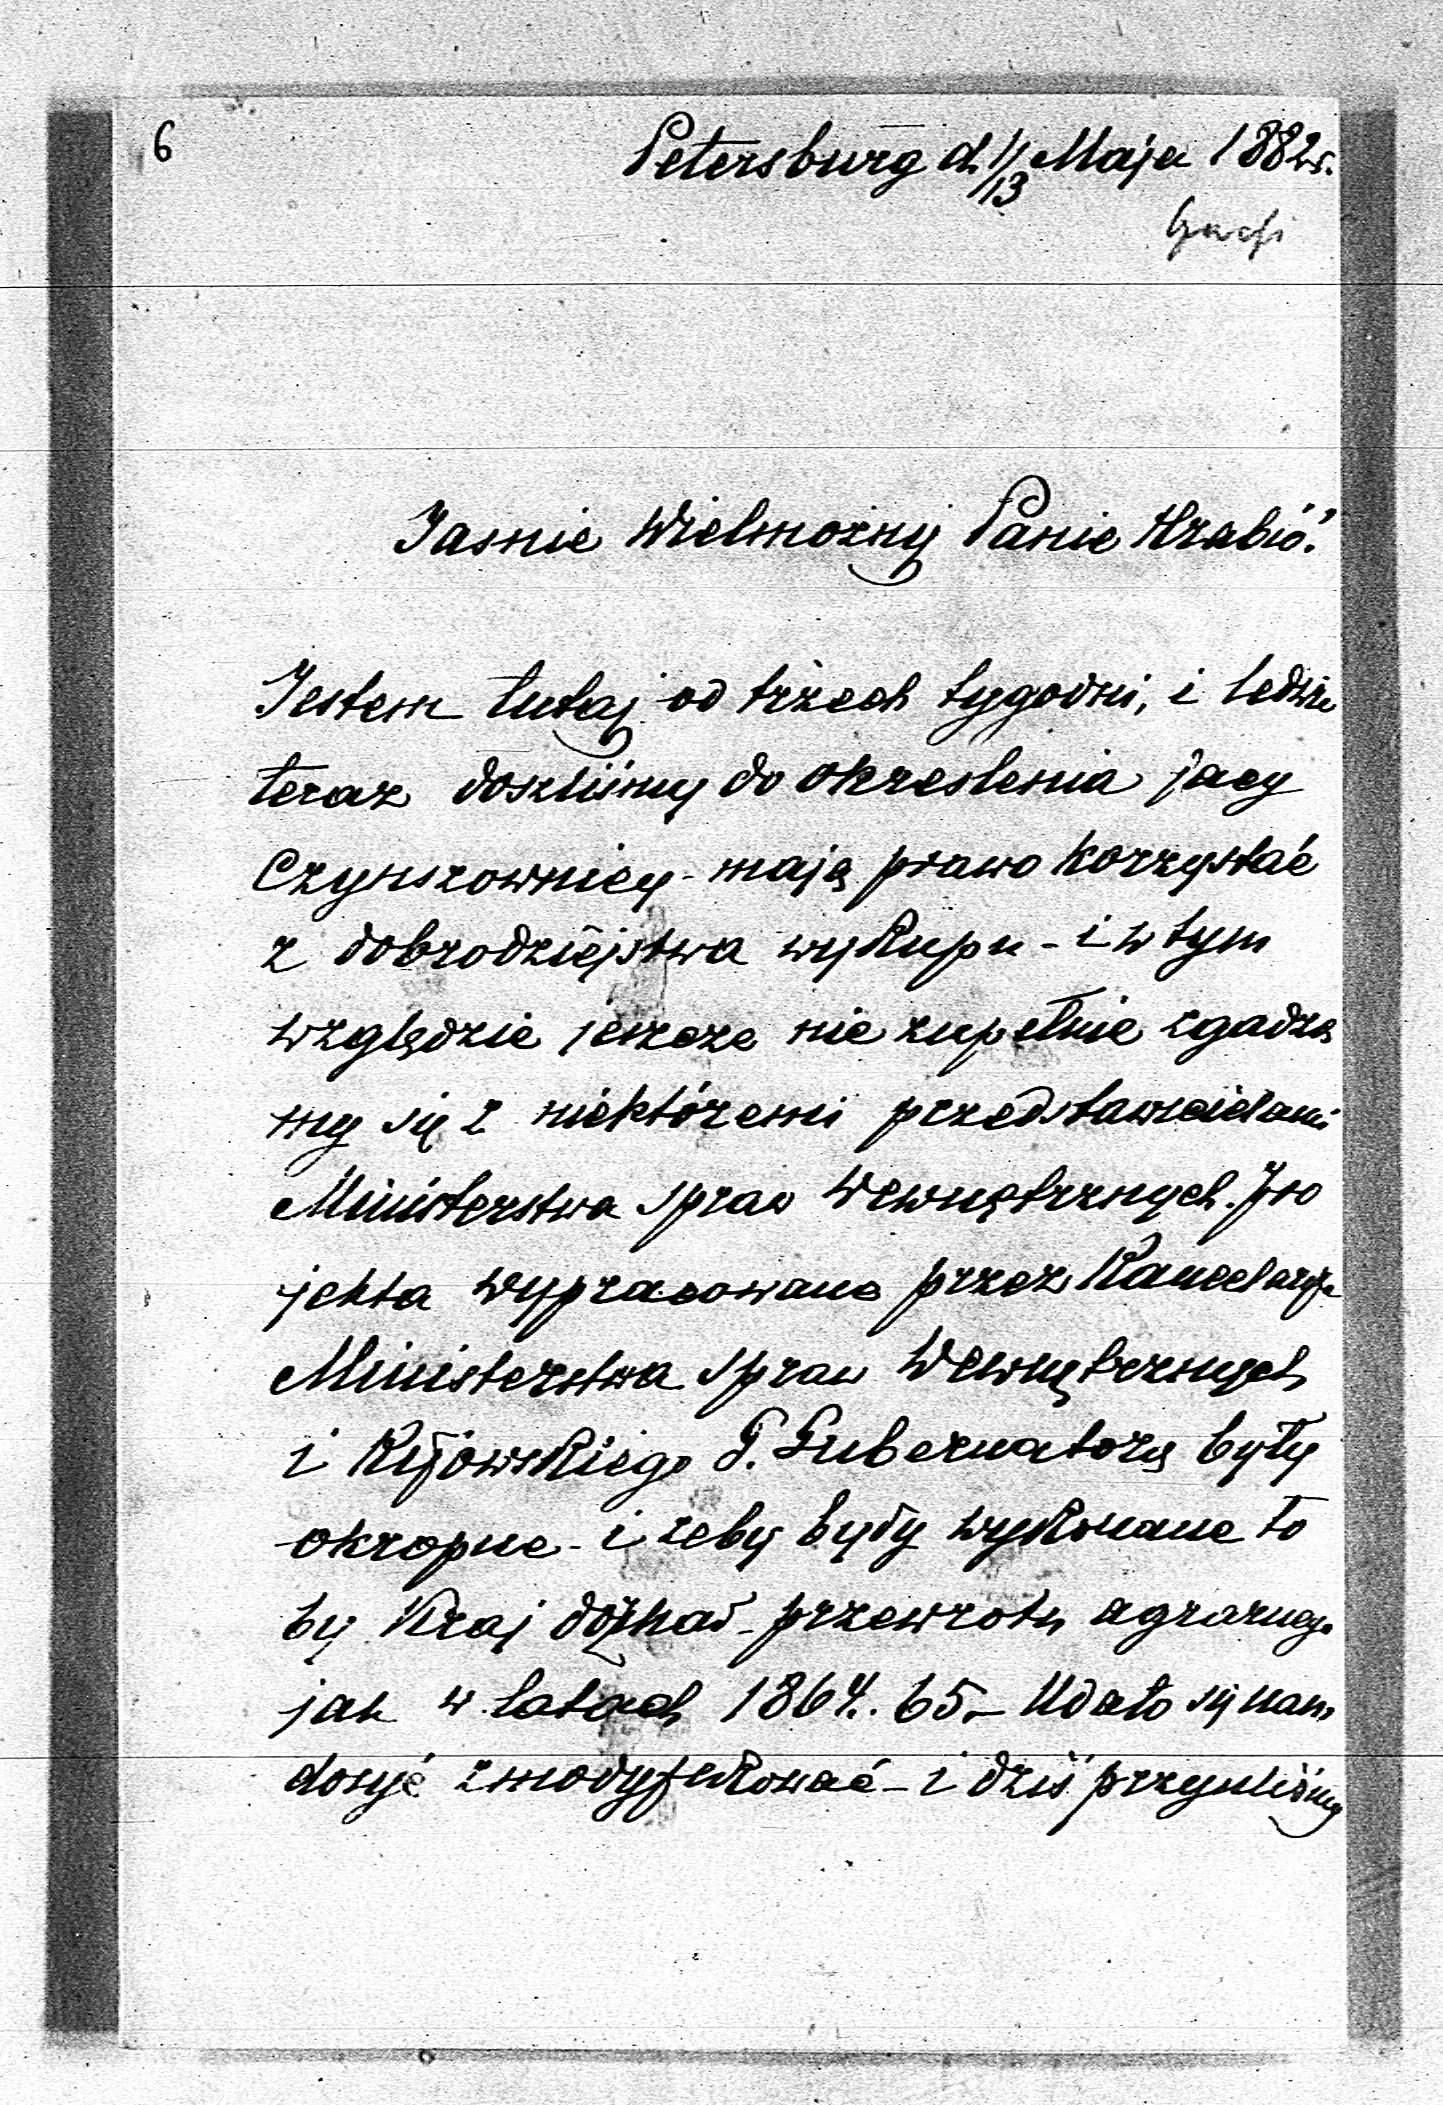 6
Petersburg d. 1/13 Maja 1882 r.
Jasnie Wielmożny Panie Hrabio!
Jestem tutaj od trzech tygodni, i ledwie
teraz doszliśmy do okreslenia jacy
Czynszownicy - mają prawo korzystać
z dobrodziejstwa wykupu - i w tym
względzie jeszcze nie zupełnie zgadza
my się z niektóremi przedstawicielami
Ministerstwa Spraw Wewnętrznych. Pro
jekta wypracowane przez Kancelarye
Ministerstwa Spraw Wewnętrznych
i Kijowskiego G. Gubernatora były
okropne - i żeby były wykonane to
by Kraj doznał - przewrotu agrarnego
jak w latach 1864. 65. - Udało się nam
dosyć zmodyfikować - i dziś przyszliśmy